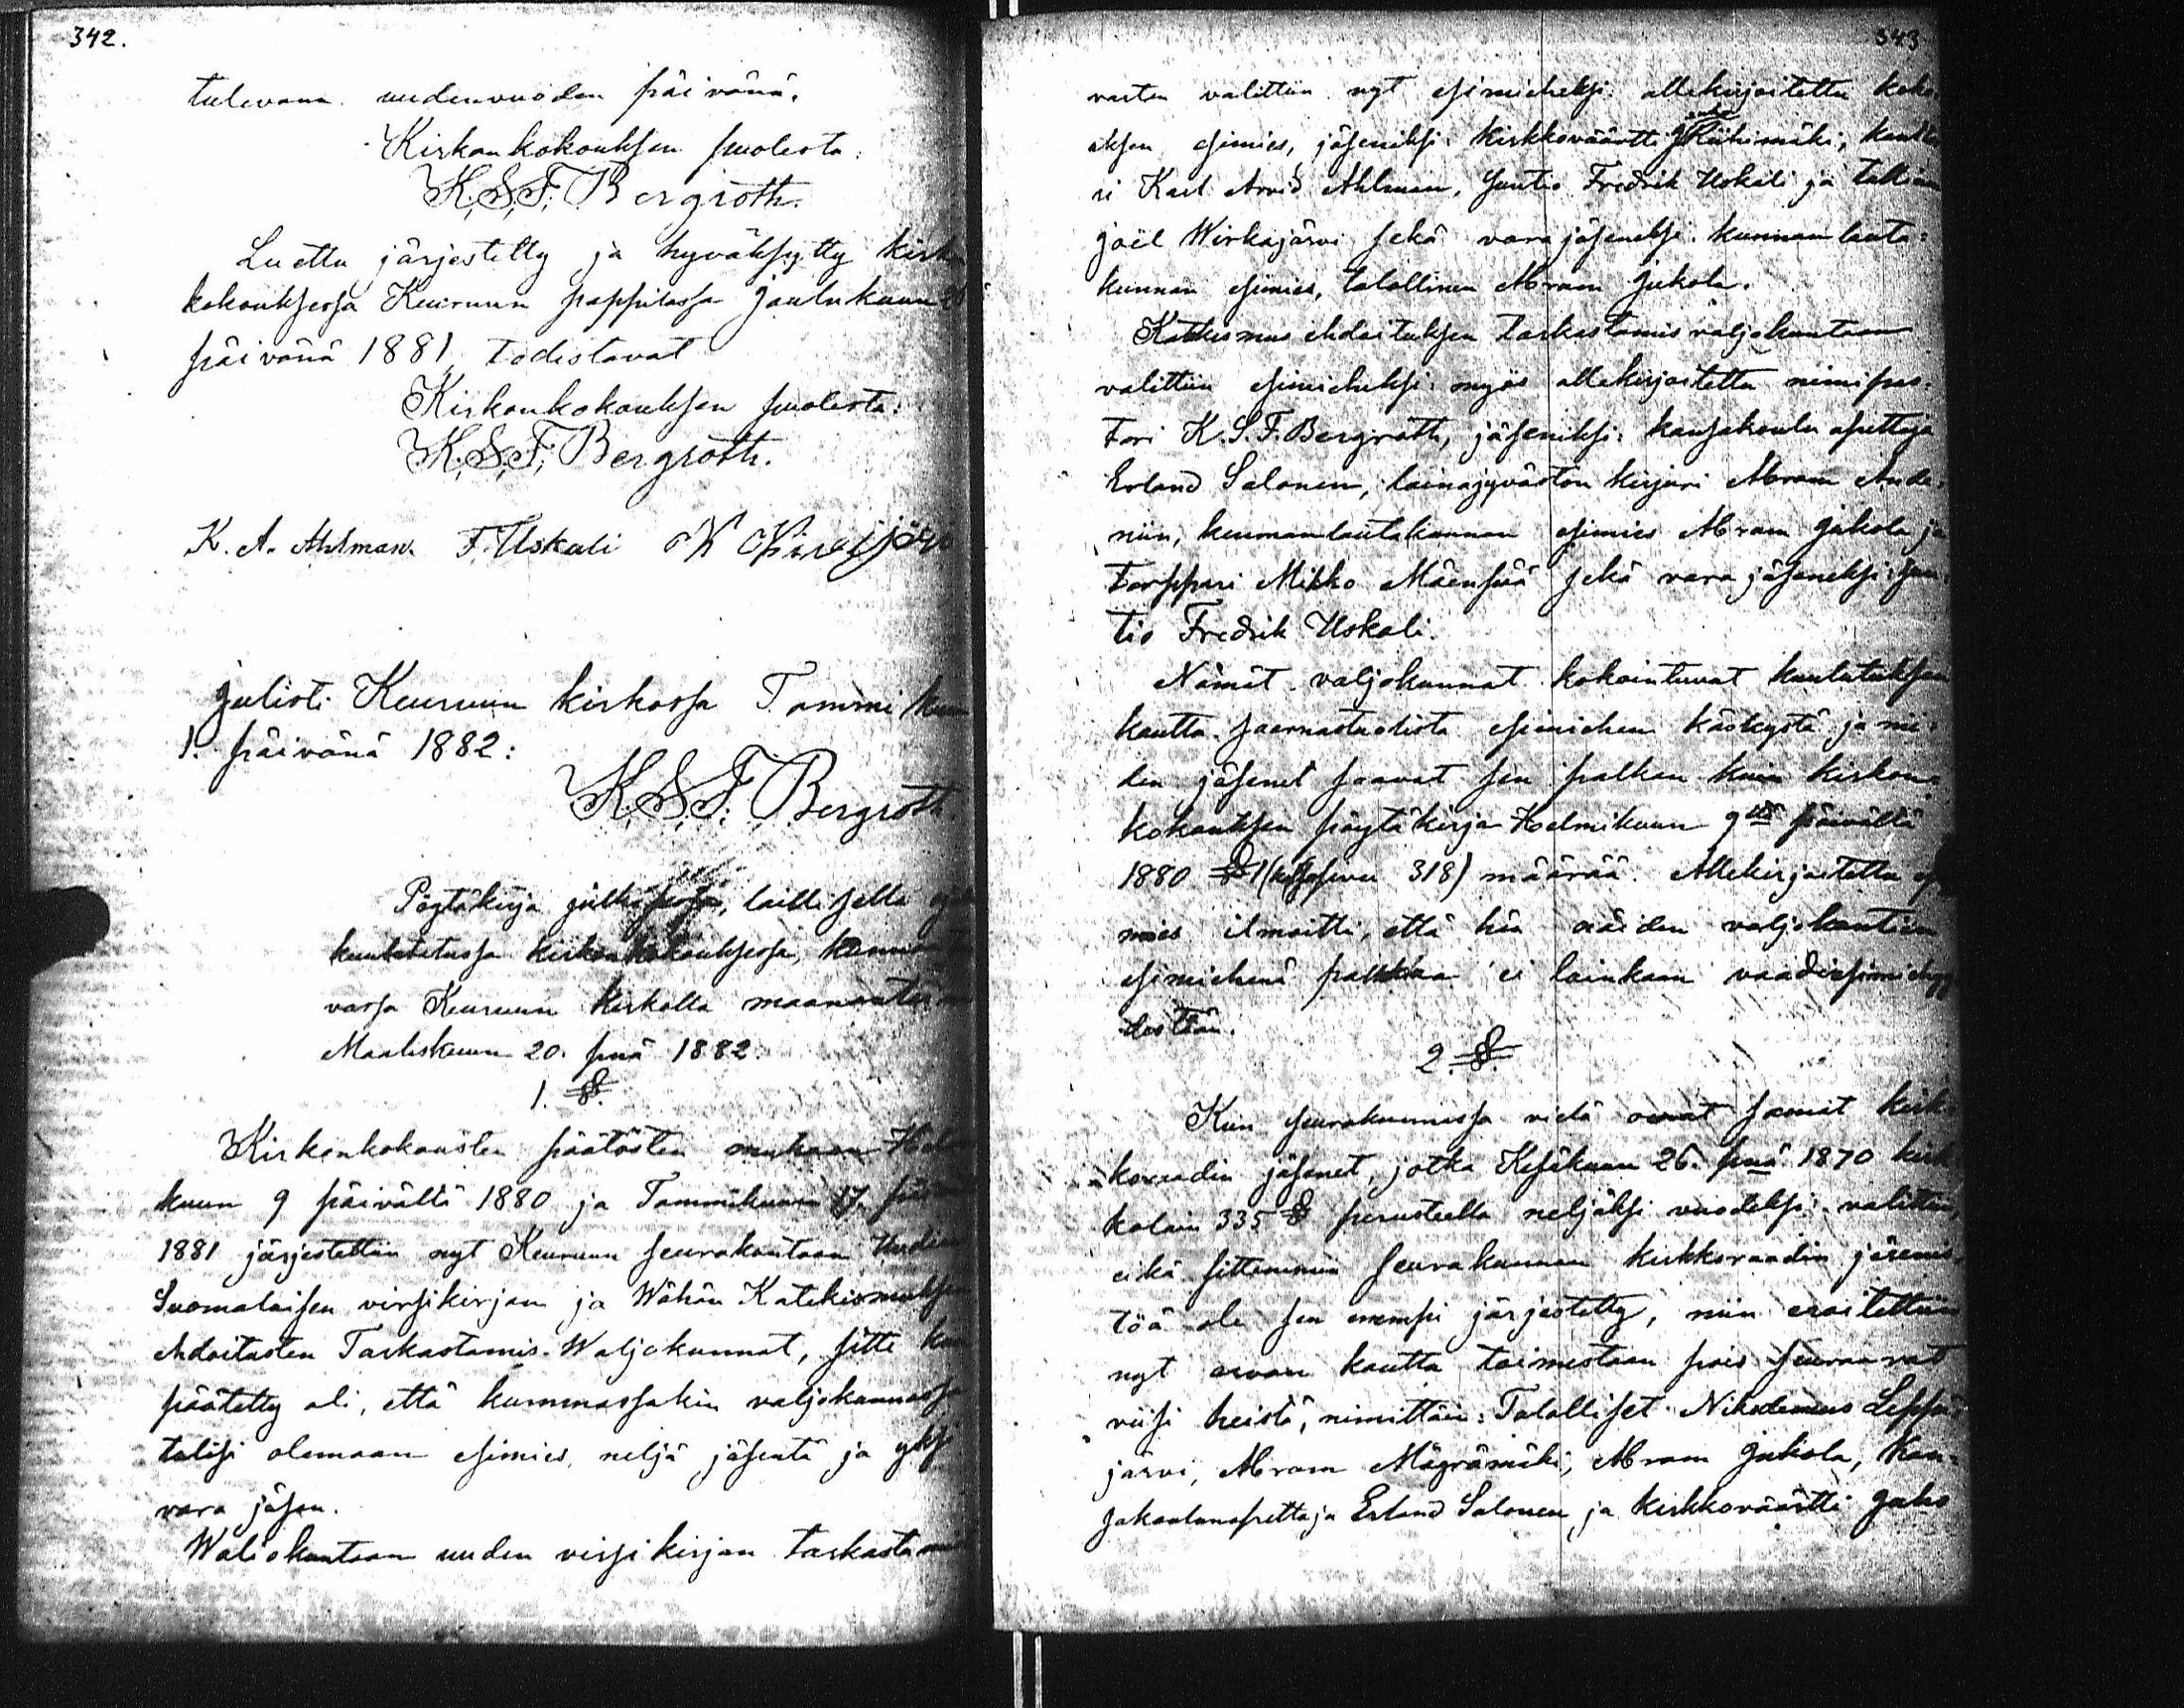 342.
tulevana uudenvuoden päivänä.
Kirkonkokouksen puolesta:
K.S.F. Bergroth.
Luettu järjestetty ja hyväksytty kirkon
kokouksessa Keuruun pappilassa Joulukuun
päivänä 1881, todistavat
Kirkonkokouksen puolesta:
K.S.F. Bergroth.
K. A. Ahlman. F. Uskali
Julisti Keuruun kirkossa Tammikuun
1. päivänä 1882:
K.S.F. Bergroth
Pöytäkirja julkisessa, laillisella
kuulutetussa kirkonkokouksessa,
vassa Keuruun kirkolla maanantaina
Maaliskuun 20. pnä 1882.
1. §.
Kirkonkokousten päätösten mukaan Helmi
kuun 9 päivältä 1880 ja Tammikuun 17. päivältä
1881 järjestettiin nyt Keuruun seurakuntaan Uuden
Suomalaisen virsikirjan ja Wähän Katekismuksen
ehdoitusten Tarkastamis-Waljokunnat, sitte kun
päätetty oli, että kummassakin valjokunnassa
tulisi olemaan esimies, neljä jäsentä ja yksi
vara jäsen.
Waljokuntaan uuden virsikirjan tarkastamis
343
varten valittiin nyt esimieheksi: allekirjoitettu koko-
uksen esimies, jäseniksi: kirkkoväärtti J Riihimäki, kantto
ri Karl Arvid Ahlman, Suntio Fredrik Uskali ja
Joel Wirkajärvi sekä varajäseneksi: kunnan lauta-
kunnan esimies, talollinen Abram Jukola.
Katkismus ehdoituksen tarkastamis valjokuntaan
valittiin esimieheksi: myös allekirjoitettu nimipas-
tori K.S.F. Bergroth, jäseniksi: kansakoulu opettaja
Erland Salonen, lainajyvästön kirjuri Abram Ande-
niin, kunnanlautakunnan esimies Abram Jukola ja
torppari Mikko Mäenpää sekä vara jäseneksi: Sun-
tio Fredrik Uskali.
Nämät valjokunnat kokointuvat kuulutuksen
kautta saarnastuolista esimiehen käskystä ja nii-
den jäsenet saavat sen palkan kuin kirkon-
kokouksen pöytäkirja Helmikuun 9 päivältä
1880 § 1 (katso sivu 318) määrää. Allekirjoitettu esi
mies ilmoitti, että hän näiden valjokuntien
esimiehenä palkkaa ei lainkaan vaadi esimiehyy
destään.
2. §.
Kun seurakunnassa vielä ovat samat kirk-
koraadin jäsenet, jotka Kesäkuun 26. pnä 1870 kirk
kolain 335 § perusteella neljäksi vuodeksi valittiin,
eikä sittemmin seurakunnan kirkkoraadin jäsenis
töä ole sen enempi järjestetty, niin eroitettiin
nyt arvan kautta toimestaan pois seuraavat
viisi heistä, nimittäin: Talolliset Nikodemus Leppä
järvi, Abram Mäyrämäki, Abram Jukola, Kan-
sakoulunopettaja Erland Salonen ja kirkkoväärtti Juho